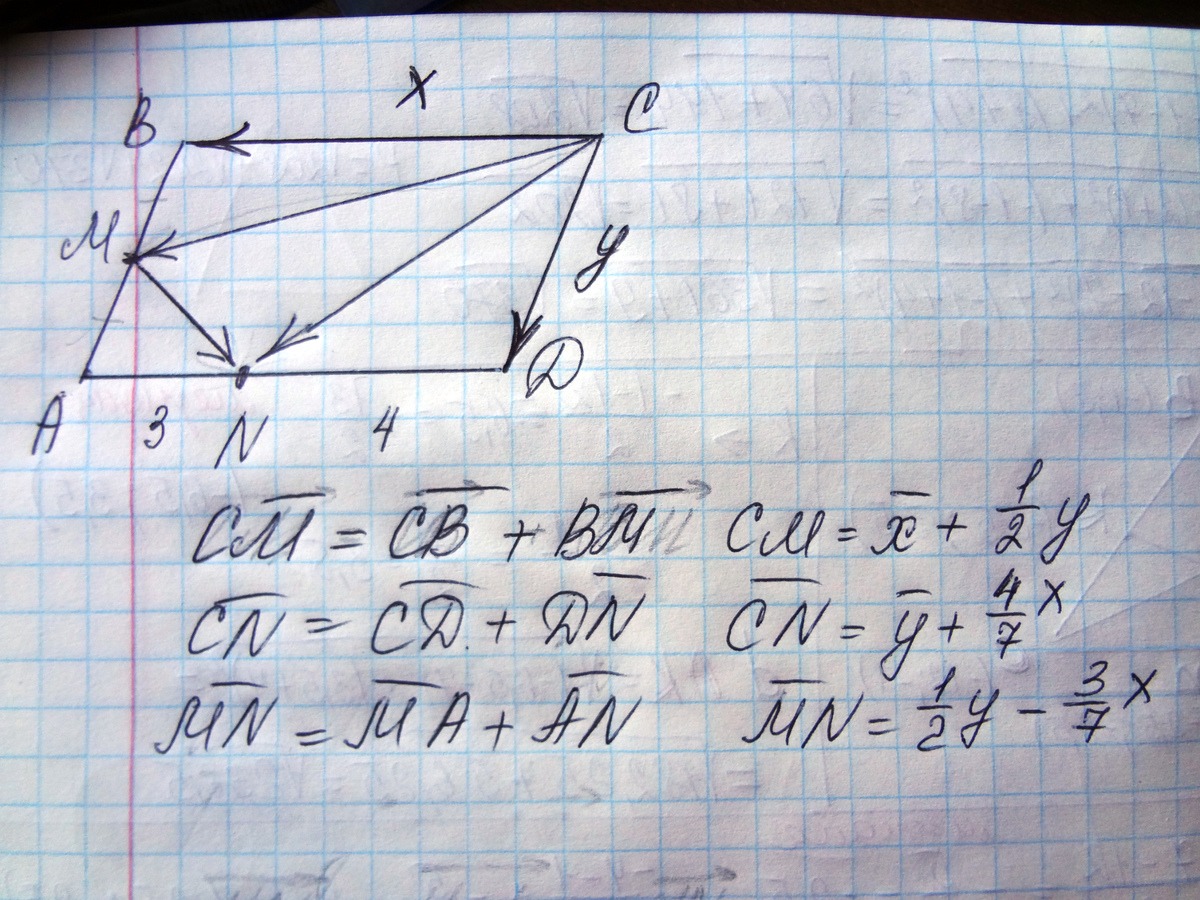 x
B C
M y
A 3 N 4 D
CM = CB + BM CM = x̅ + 1/2 y
CN = CD + DN CN = y̅ + 4/7 x
MN = MA + AN MN = 1/2 y - 3/7 x